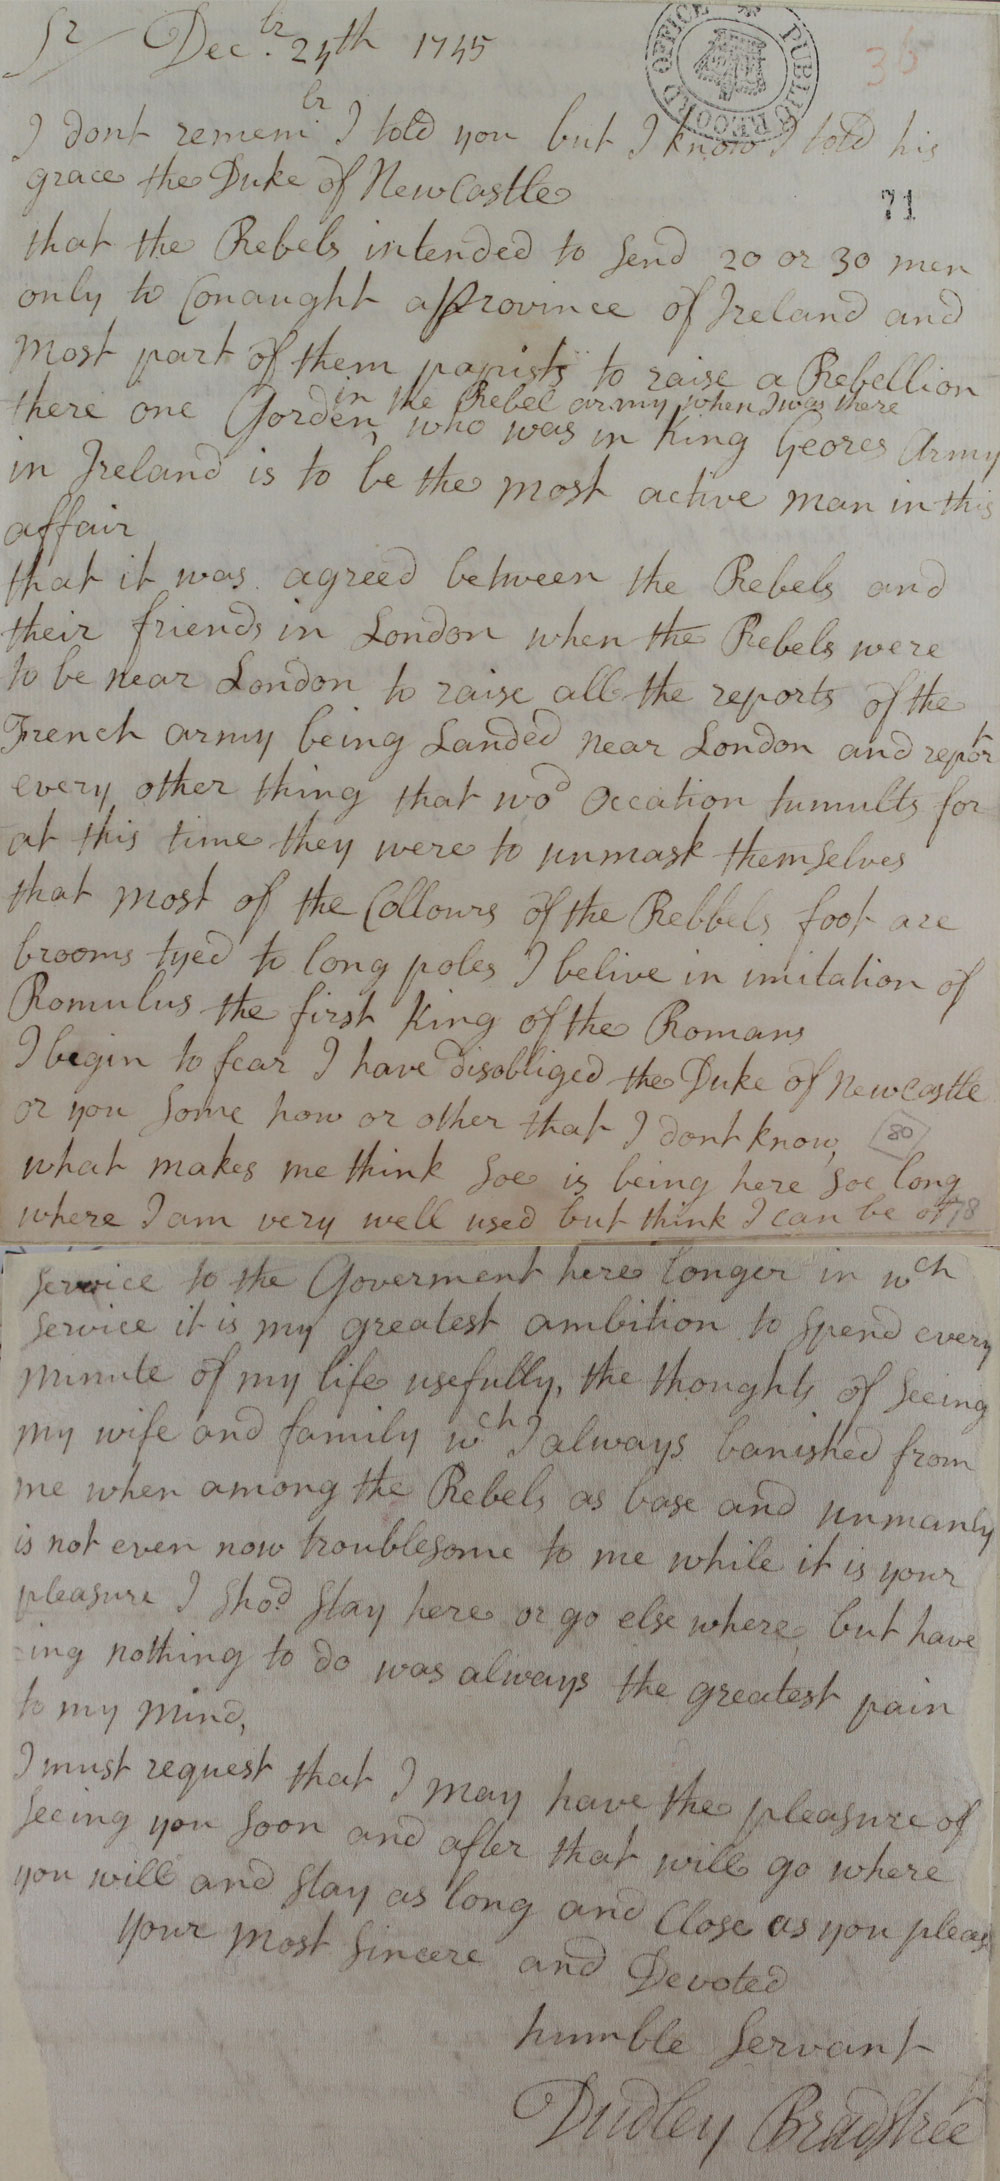 Sr Decbr. 24th 1745
PUBLIC RECORD OFFICE
36
I dont remembr I told you but I know I told his
grace the Duke of Newcastle
71
that the Rebels intended to send 20 or 30 men
only to Conaught a Province of Ireland and
most part of them papists to raise a Rebellion
in the Rebel army when I was there
there one Gorden, who was in King Geores Army
in Ireland is to be the most active man in this
affair
that it was agreed between the Rebels and
their friends in London when the Rebels were
to be near London to raise all the reports of the
French army being Landed near London and report
every other thing that wod Occation tumults for
at this time they were to unmask themselves
that most of the Collours of the Rebbels foot are
brooms tyed to long poles I belive in imitation of
Romulus the first King of the Romans
I begin to fear I have disobliged the Duke of Newcastle
or you some how or other that I dont know,
80
what makes me think soe is being here soe long
where I am very well used but think I can be of
78
service to the Goverment here longer in wch
service it is my greatest ambition to spend every
minute of my life usefully, the thoughts of seeing
my wife and family wch I always banished from
me when among the Rebels as base and unmanly
is not even now troublesome to me while it is your
pleasure I shod stay here or go else where, but have
ing nothing to do was always the greatest pain
to my mind,
I must request that I may have the pleasure of
seeing you soon and after that will go where
you will and stay as long and Close as you pleas
your most sincere and Devoted
humble servant
Dudley Bradstreet